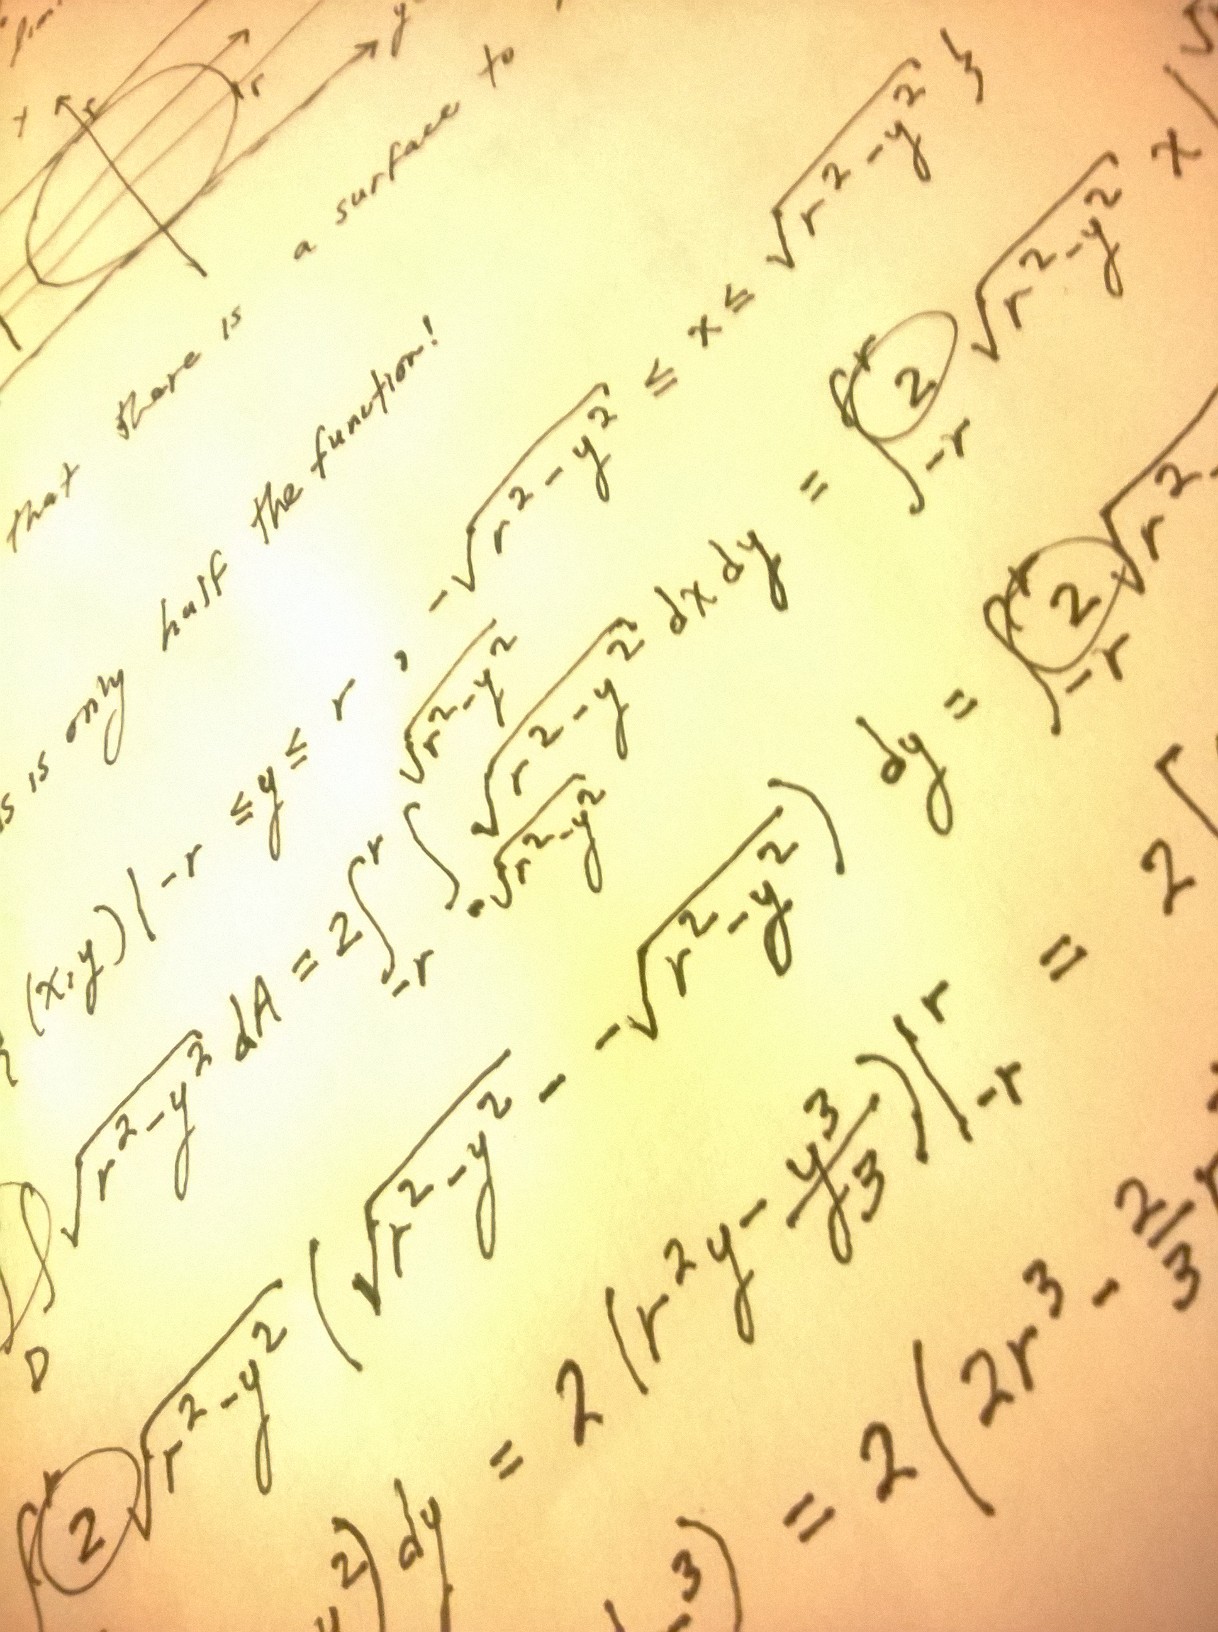 x r r y
that there is a surface to
is only half the function!
(x,y) | -r ≤ y ≤ r, -√(r²-y²) ≤ x ≤ √(r²-y²) }
∬_D √(r²-y²) dA = 2∫_{-r}^{r} ∫_{-√(r²-y²)}^{√(r²-y²)} √(r²-y²) dx dy = ∫_{-r}^{r} 2 √(r²-y²) x |
∫^r 2 √(r²-y²) (√(r²-y²) - -√(r²-y²)) dy = ∫_{-r}^{r} 2 √r²-
y²) dy = 2 (r²y - y³/3) |_{-r}^{r} = 2 (
³) = 2 (2r³ - 2/3 r